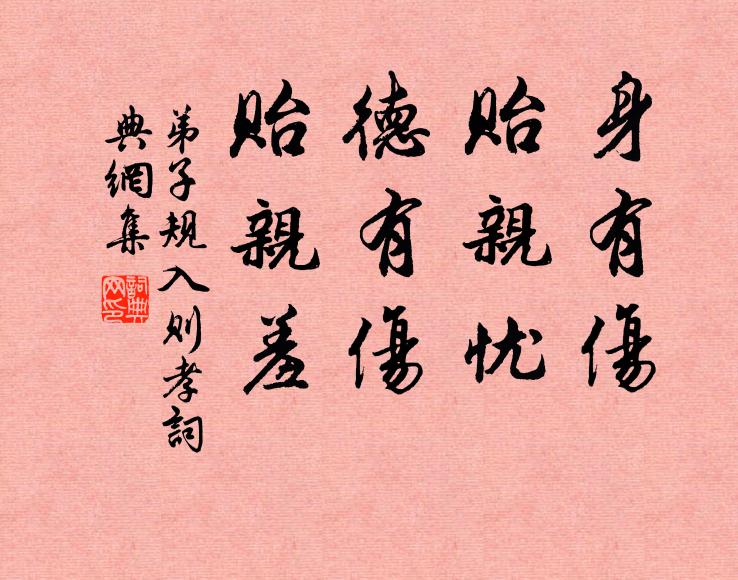 身有傷
貽親忧
德有傷
貽親羞
弟子規入则孝詞
典網集
詞典
网印